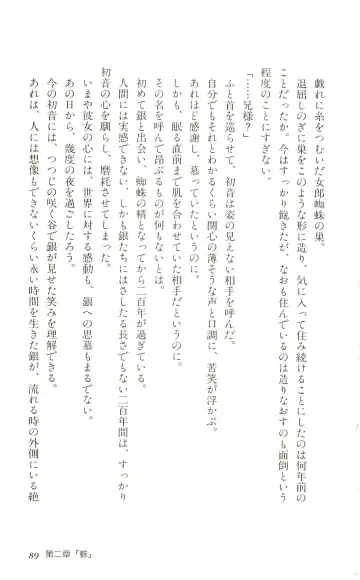 戯れに糸をつむいだ女郎蜘蛛の巣。
退屈しのぎに巣をこのような形に造り、気に入って住み続けることにしたのは何年前の
ことだったか。今はすっかり飽きたが、なおも住んでいるのは造りなおすのも面倒という
程度のことにすぎない。
「……兄様？」
ふと首を巡らせて、初音は姿の見えない相手を呼んだ。
自分でもそれとわかるくらい関心の薄そうな声と口調に、苦笑が浮かぶ。
あれほど感謝し、慕っていたというのに。
しかも、眠る直前まで肌を合わせていた相手だというのに。
その名を呼んで昂ぶるものが何もないとは。
初めて銀と出会い、蜘蛛の精となってから二百年が過ぎている。
人間には実感できない、しかも銀たちにはさしたる長さでもない二百年間は、すっかり
初音の心を馴らし、磨耗させてしまった。
いまや彼女の心には、世界に対する感動も、銀への思慕もまるでない。
あの日から、幾度の夜を過ごしたろう。
今の初音には、つつじの咲く谷で銀が見せた笑みを理解できる。
あれは、人には想像もできないくらい永い時間を生きた銀が、流れる時の外側にいる絶
89 第二章「蛛」